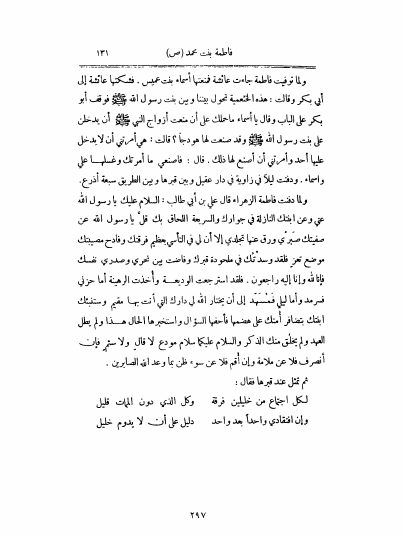 فاطمة بنت محمد (ص) ١٣١
ولما توفيت فاطمة جاءت عائشة فمنعتها أسماء بنت عميس . فشكتها عائشة إلى
أبي بكر وقالت : هذه الخثعمية تحول بيننا وبين بنت رسول الله ﷺ فوقف أبو
بكر على الباب وقال يا أسماء ماحملك على أن منعت أزواج النبي ﷺ أن يدخلن
على بنت رسول الله ﷺ وقد صنعت لها هودجاً ؟ قالت : هي أمرتني أن لا يدخل
عليها أحد وأمرتني أن أصنع لها ذلك . قال : فاصنعي ما أمرتك وغسلها علي
وأسماء . ودفنت ليلاً في زاوية في دار عقيل وبين قبرها وبين الطريق سبعة أذرع.
ولما دفنت فاطمة الزهراء قال علي بن أبي طالب : السلام عليك يا رسول الله
عني وعن ابنتك النازلة في جوارك والسريعة اللحاق بك قلَّ يا رسول الله عن
صفيتك صَبري ورق عنها تجلدي إلا أن لي في التأسي بعظيم فرقتك وفادح مصيبتك
موضع تعزٍ فلقد وسدتُك في ملحودة قبرك وفاضت بين نحري وصدري نفسك
فإنا لله وإنا إليه راجعون . فلقد استرجعت الوديعة وأُخذت الرهينة أما حزني
فسرمد وأما ليلي فَمُسَهَّد إلى أن يختار الله لي دارك التي أنت بها مقيم وستنبئك
ابنتك بتضافر أمتك على هضمها فأحفها السؤال واستخبرها الحال هذا ولم يطل
العهد ولم يخلُق منك الذكر والسلام عليكما سلام مودع لا قالٍ ولا سئمٍ فإن
أنصرف فلا عن ملامة وإن أقم فلا عن سوء ظن بما وعد الله الصابرين .
ثم تمثل عند قبرها فقال :
لكل اجتماع من خليلين فرقة وكل الذي دون الممات قليل
وإن افتقادي واحداً بعد واحد دليل على أن لا يدوم خليل
٢٩٧